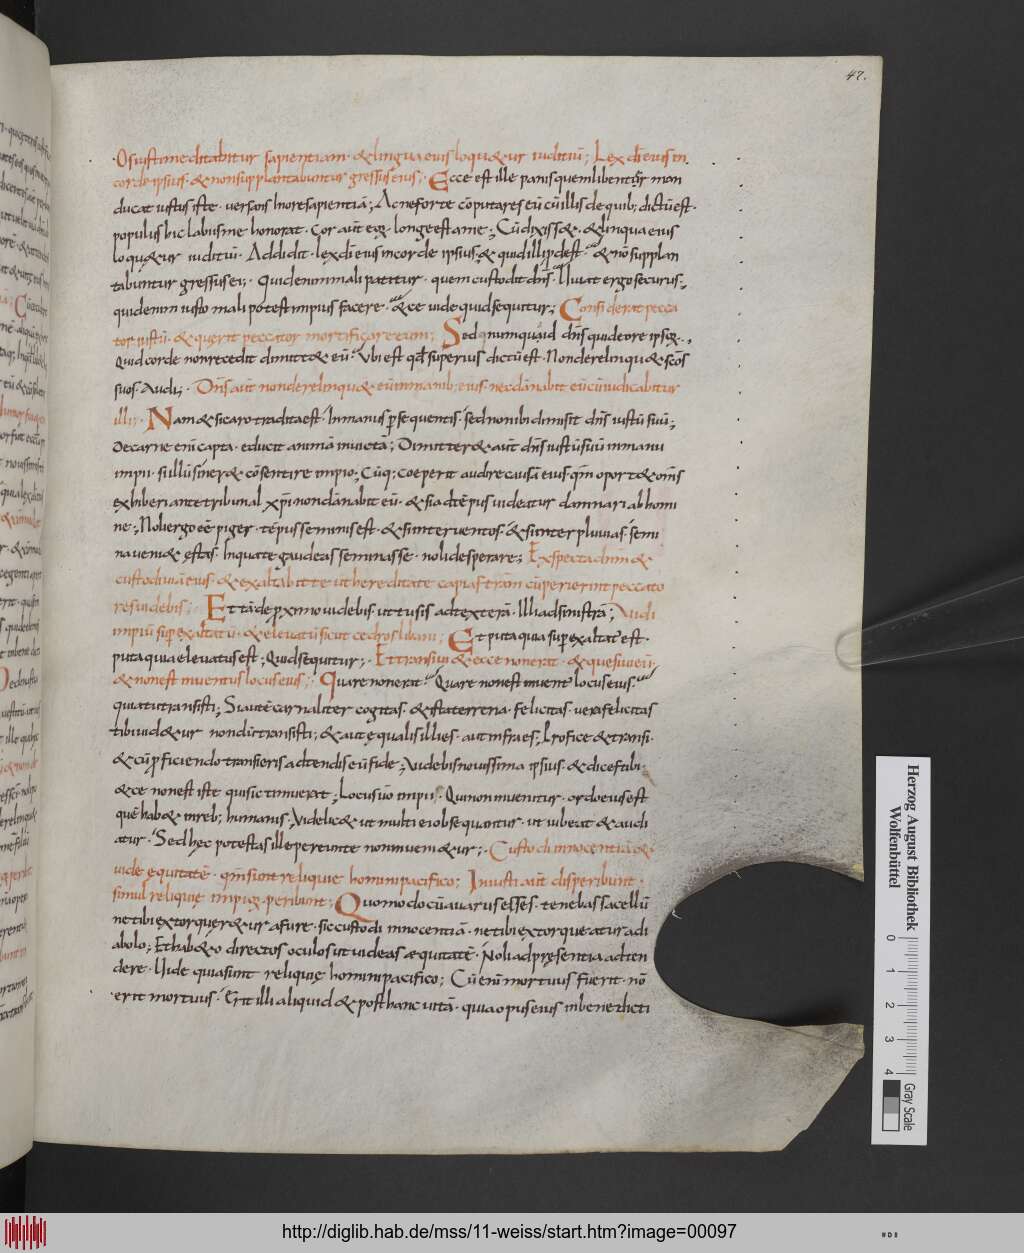 47.
Os iusti meditabitur sapientiam · & lingua eius loqu&ur iuditiū ; Lex dī eius in
corde ipsius · & non supplantabuntur gressus eius ; Ecce est ille panis quem libenter man
ducat iustus iste · uersans in ore sapientiā ; Ac ne forte cōputares eū cū illis de quib; dictū est ·
populus hic labiis me honorat · cor aūt eoꝝ longe est a me ; Cū dixiss& · & lingua eius
loqu&ur iuditiū · Addidit · lex dī eius in corde ipsius · & quid illi pdest · & nō supplan
tabuntur gressus ei; · Qui denim mali patitur · quem custodit dn̄s · Uiuat ergo securus ;
quid enim iusto mali potest impius facere · & ce uide quid sequitur ; Considerat pecca
tor iustū · & querit peccator mortificare eum ; Sed numquid dn̄s qui de ore ipsoꝝ ·
Quid corde non recedit dimitt& eū · Ubi est qd superius dictū est · Non derelinqu& scōs
suos · Audi ; Dn̄s aūt non derelinqu& eū in manib; eius · nec dānabit eū cū iudicabitur
illi ; Nam & si caro tradita est · in manus psequentis · sed non ibi dimisit dn̄s iustū suū ;
De carne enī capta · educit animā inuictā ; Dimitter& aūt dn̄s iustū suū in manu
impii · si illū siner& cōsentire impio ; Cūq; coeperit audire causā eius · qm̄ oport& om̄s
exhiberi ante tribunal xp̄i non dānabit eū · & si ad tēpus uideatur damnari ab homi
ne ; Noli ergo eē piger · tēpus seminis est · & si inter uentos · & si inter pluuias · semi
na ueni& estas · In qua te gaudeas seminasse · noli desperare ; Exspecta dn̄m &
custodi uiā eius · & exaltabit te ut hereditate capias trām cū perierint peccato
res uidebis ; Et tā de pximo uidebis · ut tu sis ad dexterā · Illi ad sinistrā ; Audi
impiū supexaltatū · & eleuatū sicut cedros libani ; Et puta quia supexaltat' est ·
puta quia eleuatus est ; Quid sequitur ; Et transiui & ecce non erat · & quesiui eū
& non est inuentus locus eius ; Quare non erat · Quare non est inuent' locus eius ·
quia tu transisti ; Si autē carnaliter cogitas · & ista terrena · felicitas · uera felicitas
tibi uid&ur nondū transisti ; & aut equalis illi es · aut infra es ; Profice & transi ·
& cū pficiendo transieris adtendis eū fide ; Uidebis nouissima ipsius · & dices tibi ·
& ce non est iste qui sic timuerat ; Locus uō impii · Qui non inuenitur · ordo eius est
quē hab& in reb; humanis ; Uidelic& ut multi ei obsequantur · ut iubeat & audi
atur · Sed hec potestas ille pereunte non inueni&ur ; Custodi innocentiā &
uide equitatē · qm̄ sunt reliquie homini pacifico ; Iniusti aūt disperibunt ·
simul reliquie impioꝝ peribunt ; Quomodo cū auarus esses · tenebas sacellū
ne tibi extorquer&ur a fure · sic custodi innocentiā · ne tibi extorqueatur a di
abolo ; Et habeto directos oculos ut uideas æquitatē · Noli ad presentia adten
dere · Uide quia sunt reliquie homini pacifico ; Cū enī mortuus fuerit · nō
erit mortuus · Erit illi aliquid & post hanc uitā · quia opus eius in benedicti
Herzog August Bibliothek
Wolfenbüttel
0 1 2 3 4
Gray Scale
http://diglib.hab.de/mss/11-weiss/start.htm?image=00097